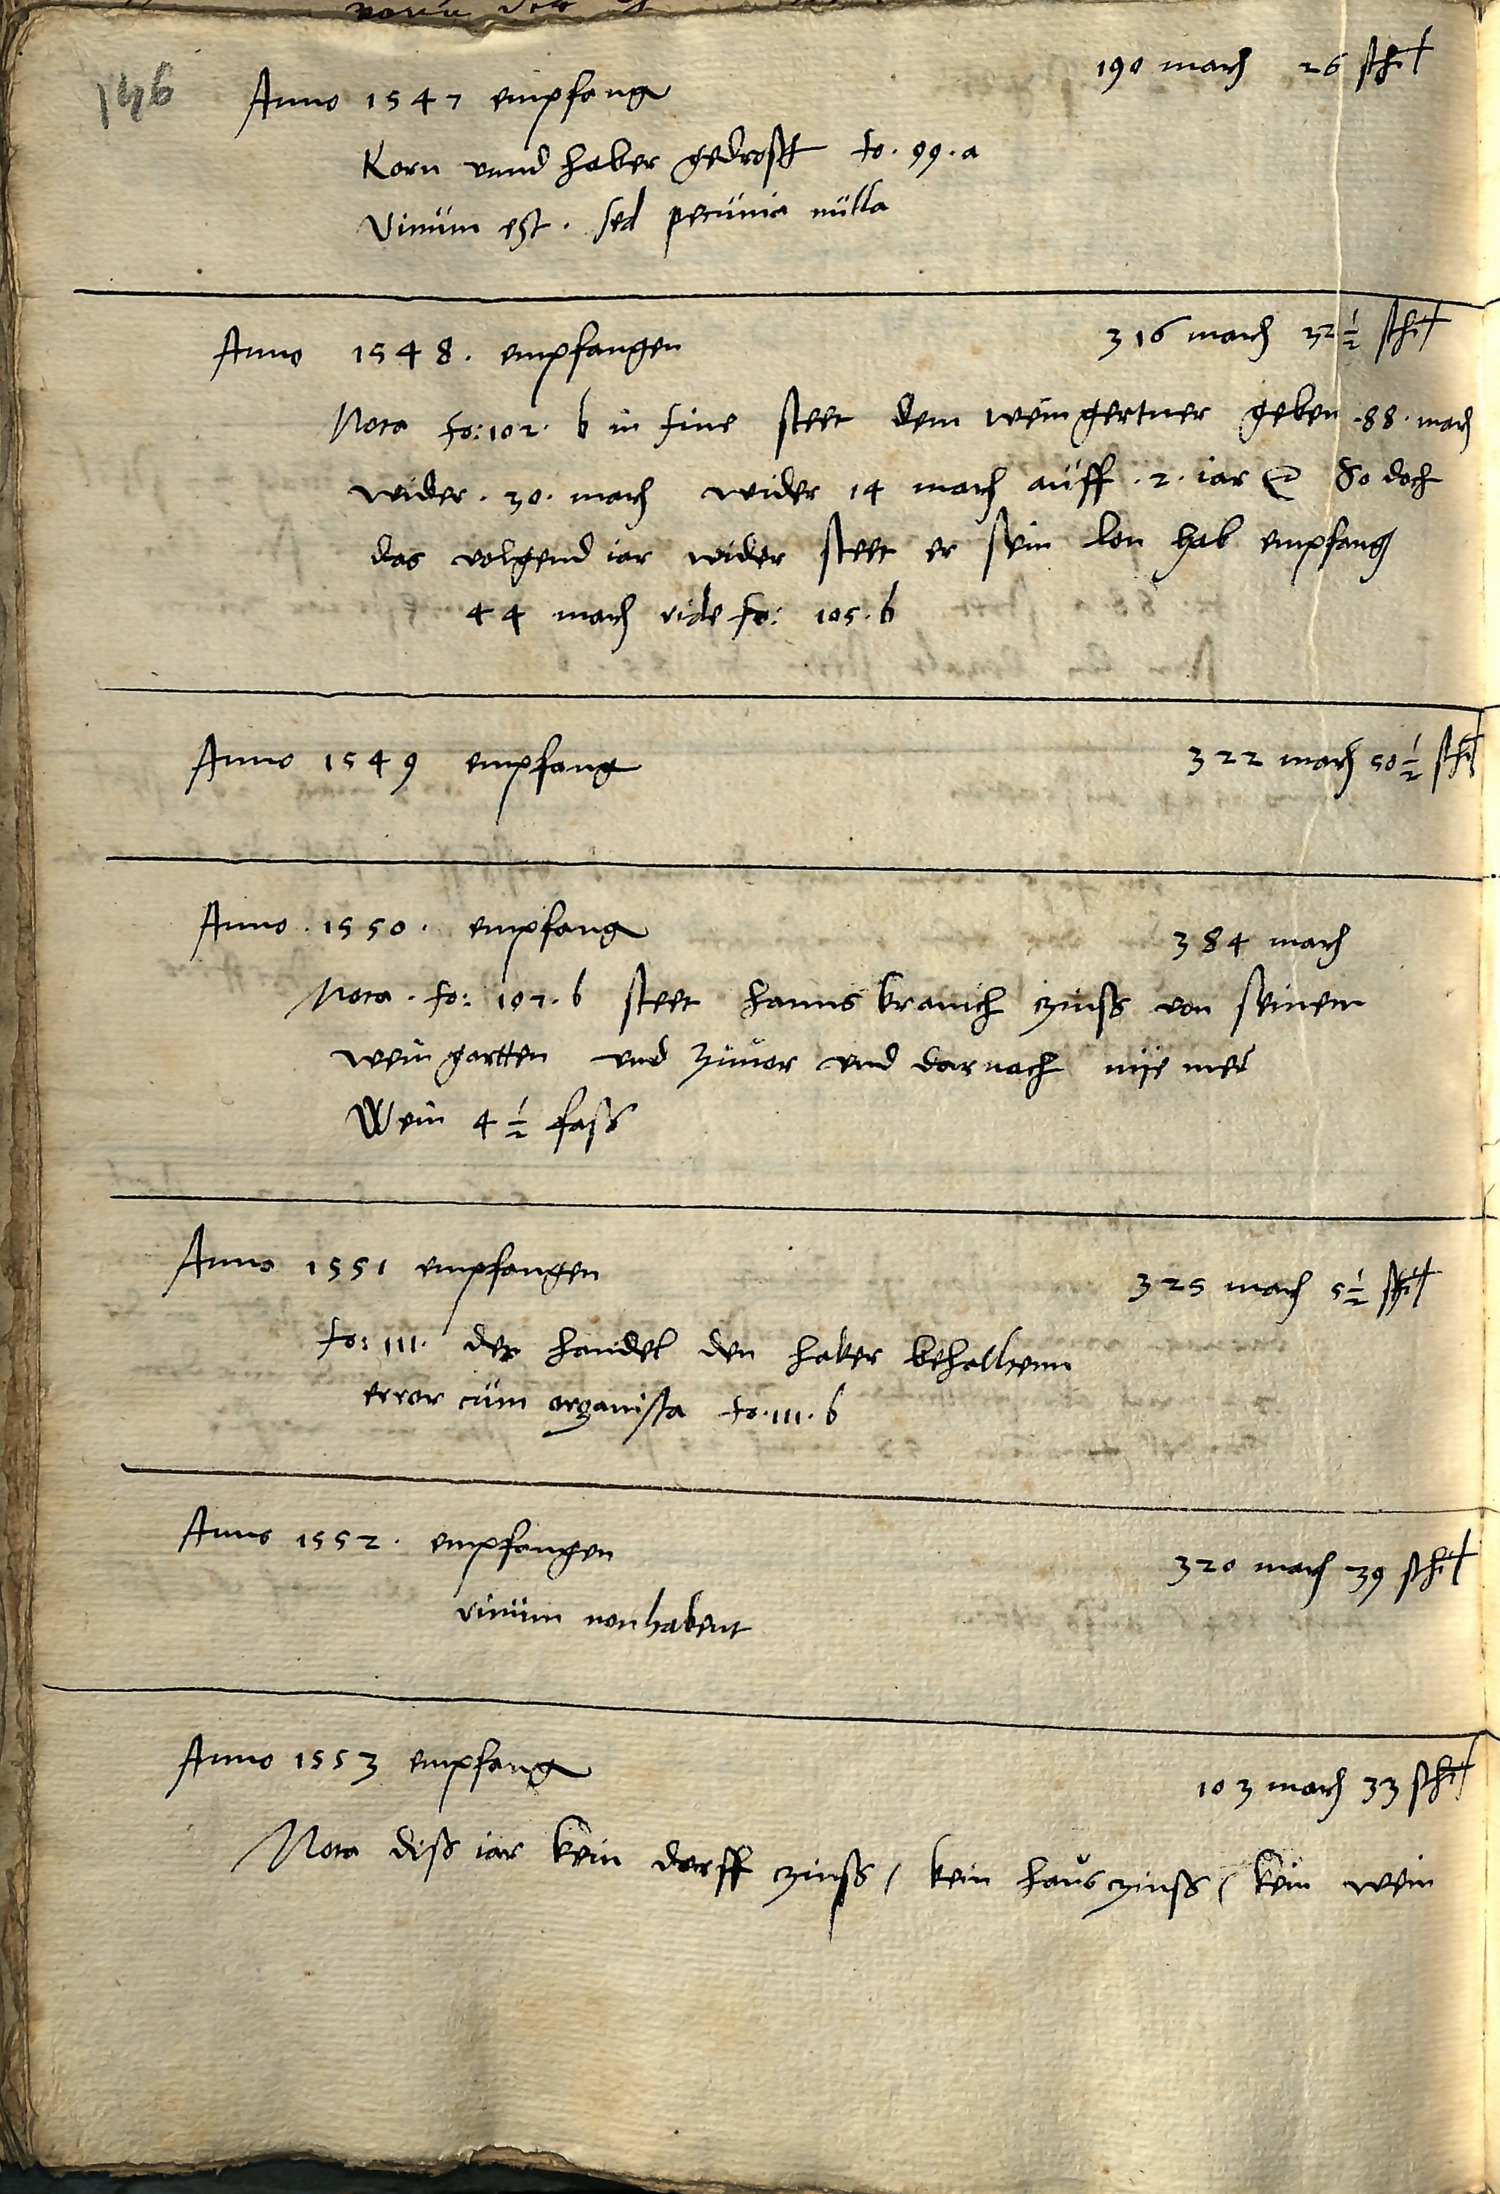 146
Anno 1547 empfang 190 march 26 schil
Korn vnnd haber gedrosch fo. 99. a
Vinum est. sed pecunia nulla
Anno 1548. empfangen 316 march 32 1/2 schil
Nota fo: 102. b in fine steet dem weingertner geben .88. march
wider . 30. march wider 14 march auff .2. iar So doch
das volgend iar wider steet er sein lon hab empfang
44 march vide fo: 105. b
Anno 1549 empfang 322 march 50 1/2 schil
Anno . 1550 . empfang 384 march
Nota . fo: 107. b steet hanns kranich zinss von seinem
weingartten vnd zuuor vnd darnach nije mer
Wein 4 1/2 fass
Anno 1551 empfangen 325 march 5 1/2 schil
fo: 111. der handel den haber behaltenn
error cum organista fo. 111. b
Anno 1552. empfangen 320 march 39 schil
vinum non habent
Anno 1553 empfang 103 march 33 schil
Nota diss iar kein dorff zinss / kein haus zinss / kein wein